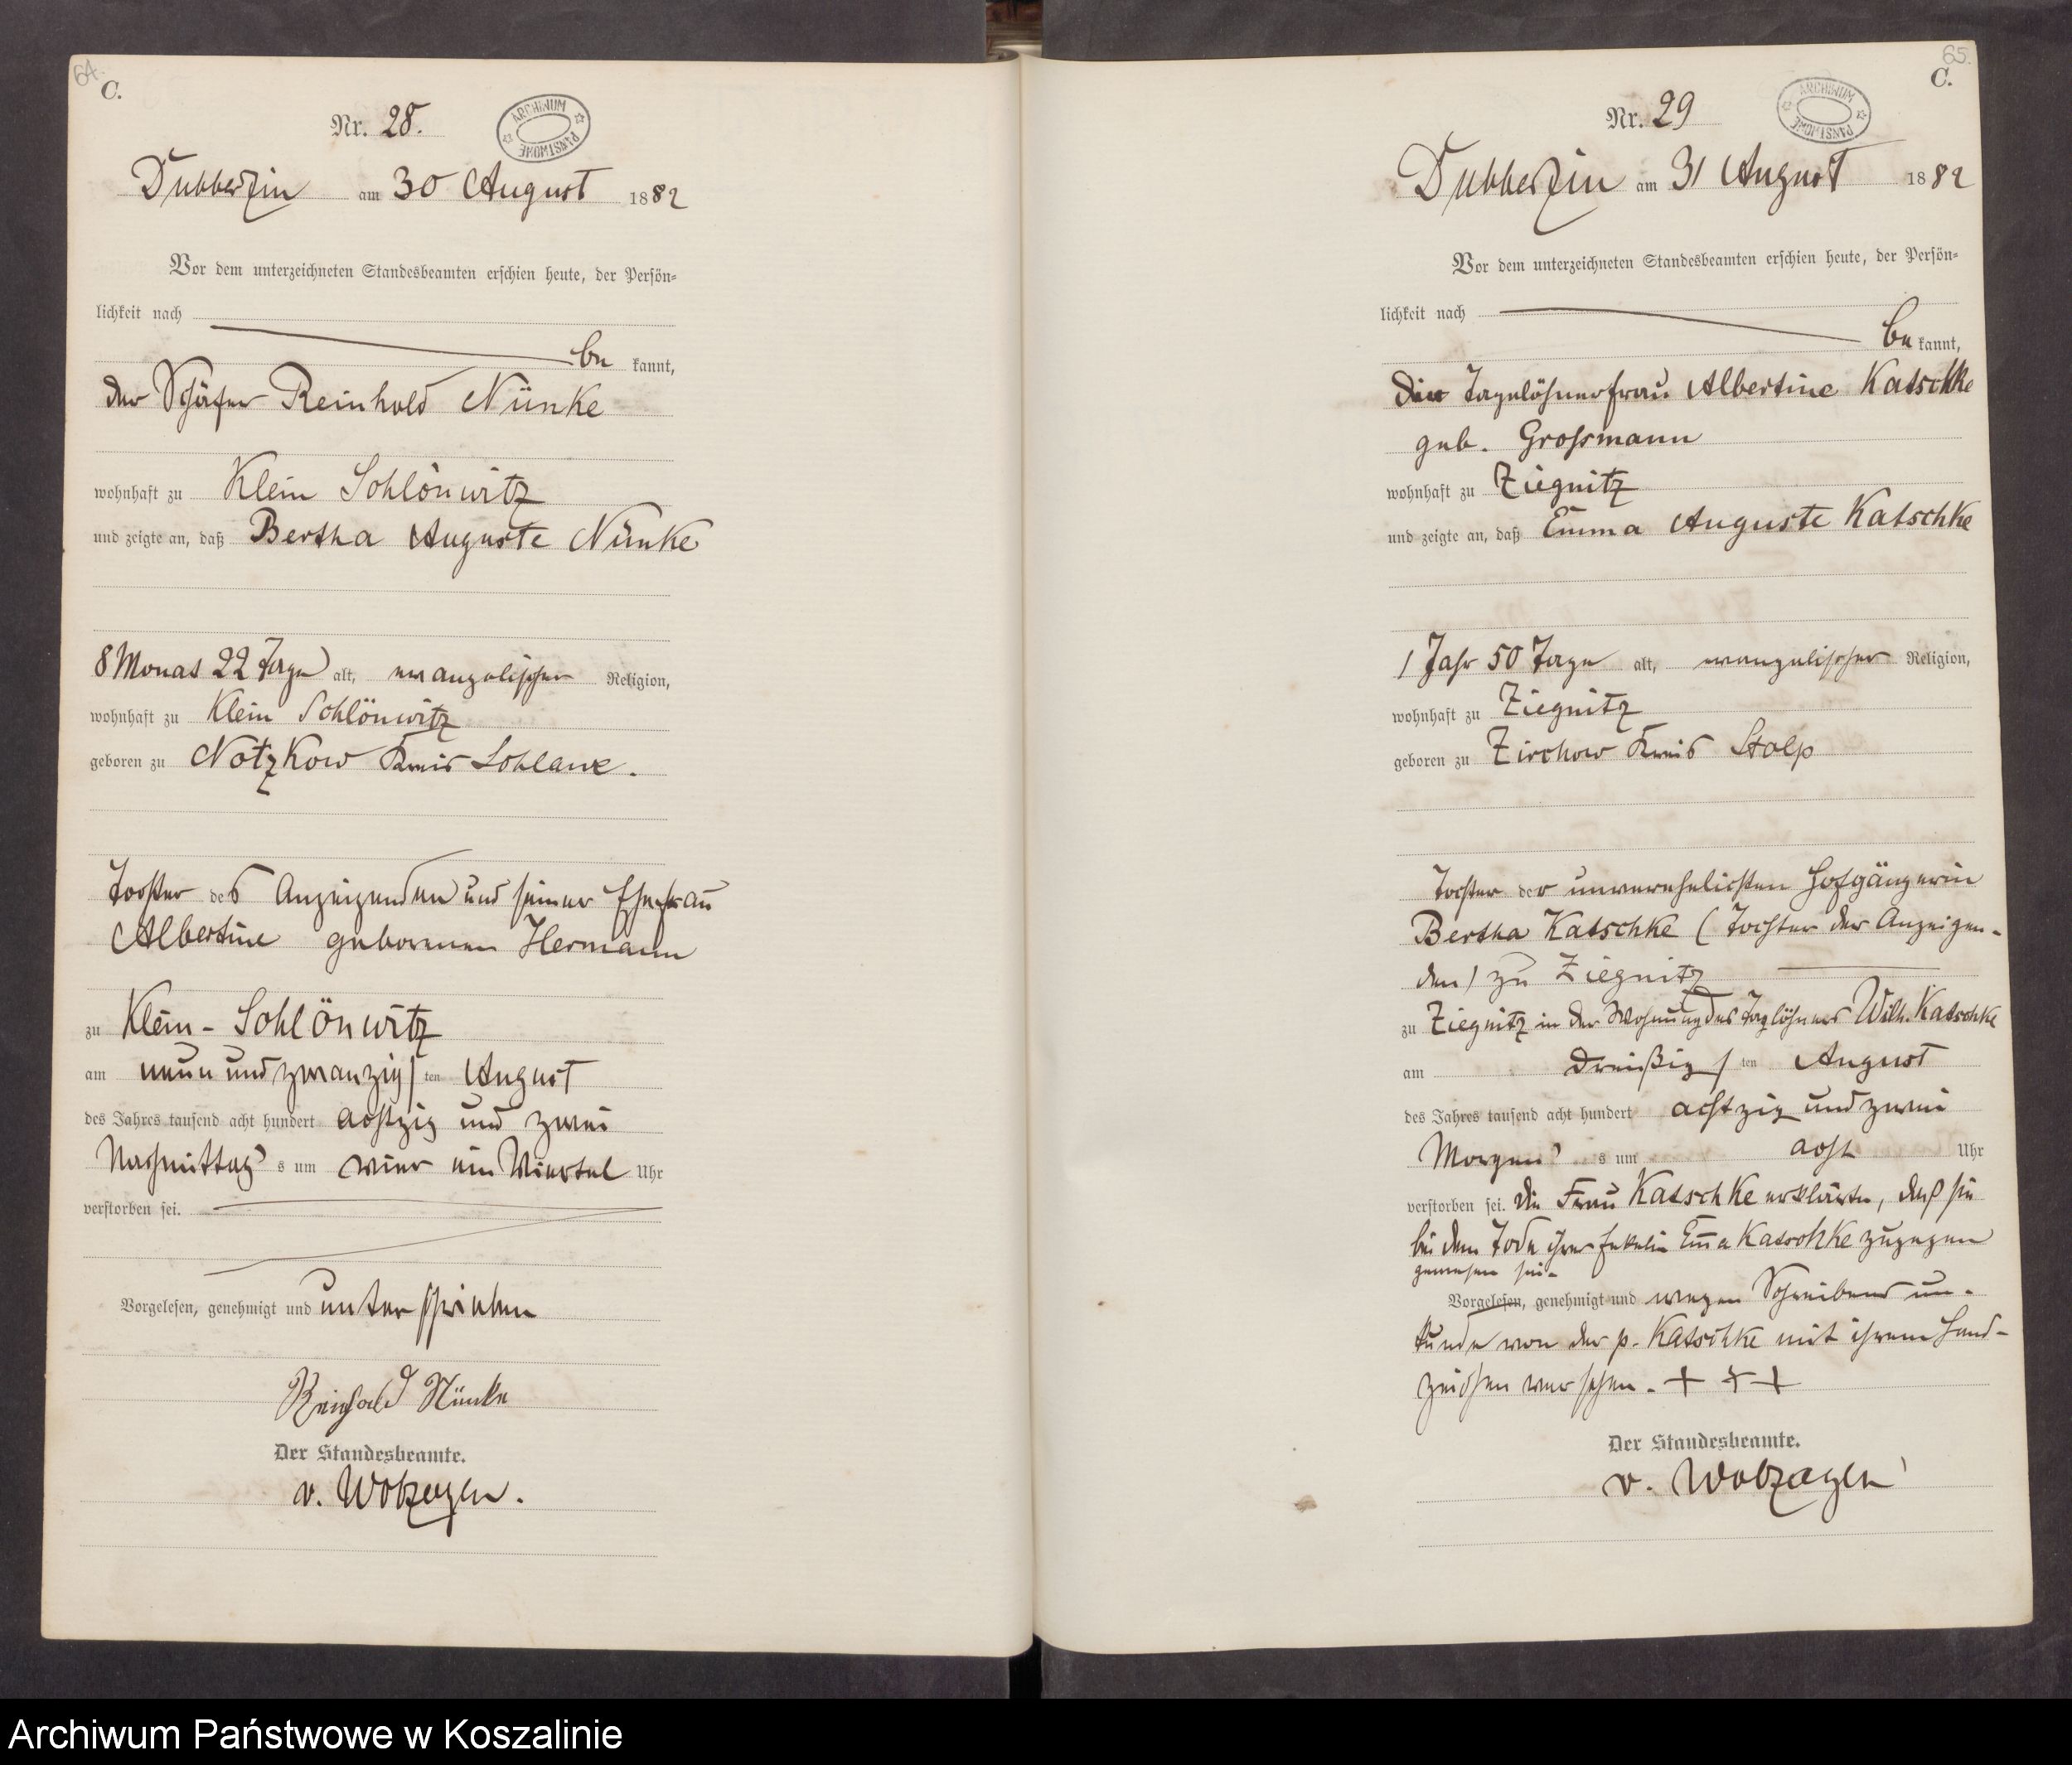 64.
C.
Nr. 28.
ARCHIWUM PAŃSTWOWE
Dubberzin am 30 August 1882
Vor dem unterzeichneten Standesbeamten erschien heute, der Persön-
lichkeit nach
be kannt,
der Schäfer Reinhold Nünke
wohnhaft zu Klein Schlönwitz
und zeigte an, daß Bertha Auguste Nünke
8 Monat 22 Tage alt, evangelischer Religion,
wohnhaft zu Klein Schlönwitz
geboren zu Notzkow Kreis Schlawe.
Tochter des Anzeigenden und seiner Ehefrau
Albertine geborenen Hermann
zu Klein-Schlönwitz
am neun und zwanzigsten August
des Jahres tausend acht hundert achtzig und zwei
Nachmittags um vier ein Viertel Uhr
verstorben sei.
Vorgelesen, genehmigt und unterschrieben
Reinhold Nünke
Der Standesbeamte.
v. Wolzogen.
65.
C.
Nr. 29
ARCHIWUM PAŃSTWOWE
Dubberzin am 31 August 1882
Vor dem unterzeichneten Standesbeamten erschien heute, der Persön-
lichkeit nach
be kannt,
die Tagelöhnerfrau Albertine Katschke
geb. Grossmann
wohnhaft zu Ziegnitz
und zeigte an, daß Emma Auguste Katschke
1 Jahr 50 Tage alt, evangelischer Religion,
wohnhaft zu Ziegnitz
geboren zu Zirchow Kreis Stolp
Tochter der unverehelichten Hofgängerin
Bertha Katschke (Tochter der Anzeigen-
den) zu Ziegnitz
zu Ziegnitz in der Wohnung des Taglöhners Wilh. Katschke
am dreißigsten August
des Jahres tausend acht hundert achtzig und zwei
Morgens um acht Uhr
verstorben sei. Die Frau Katschke erklärte, daß sie
bei dem Tode ihrer Enkelin Emma Katschke zugegen
gewesen sei.
Vorgelesen, genehmigt und wegen Schreibens un-
kunde von der p. Katschke mit ihrem Hand-
zeichen versehen. + + +
Der Standesbeamte.
v. Wolzogen
Archiwum Państwowe w Koszalinie